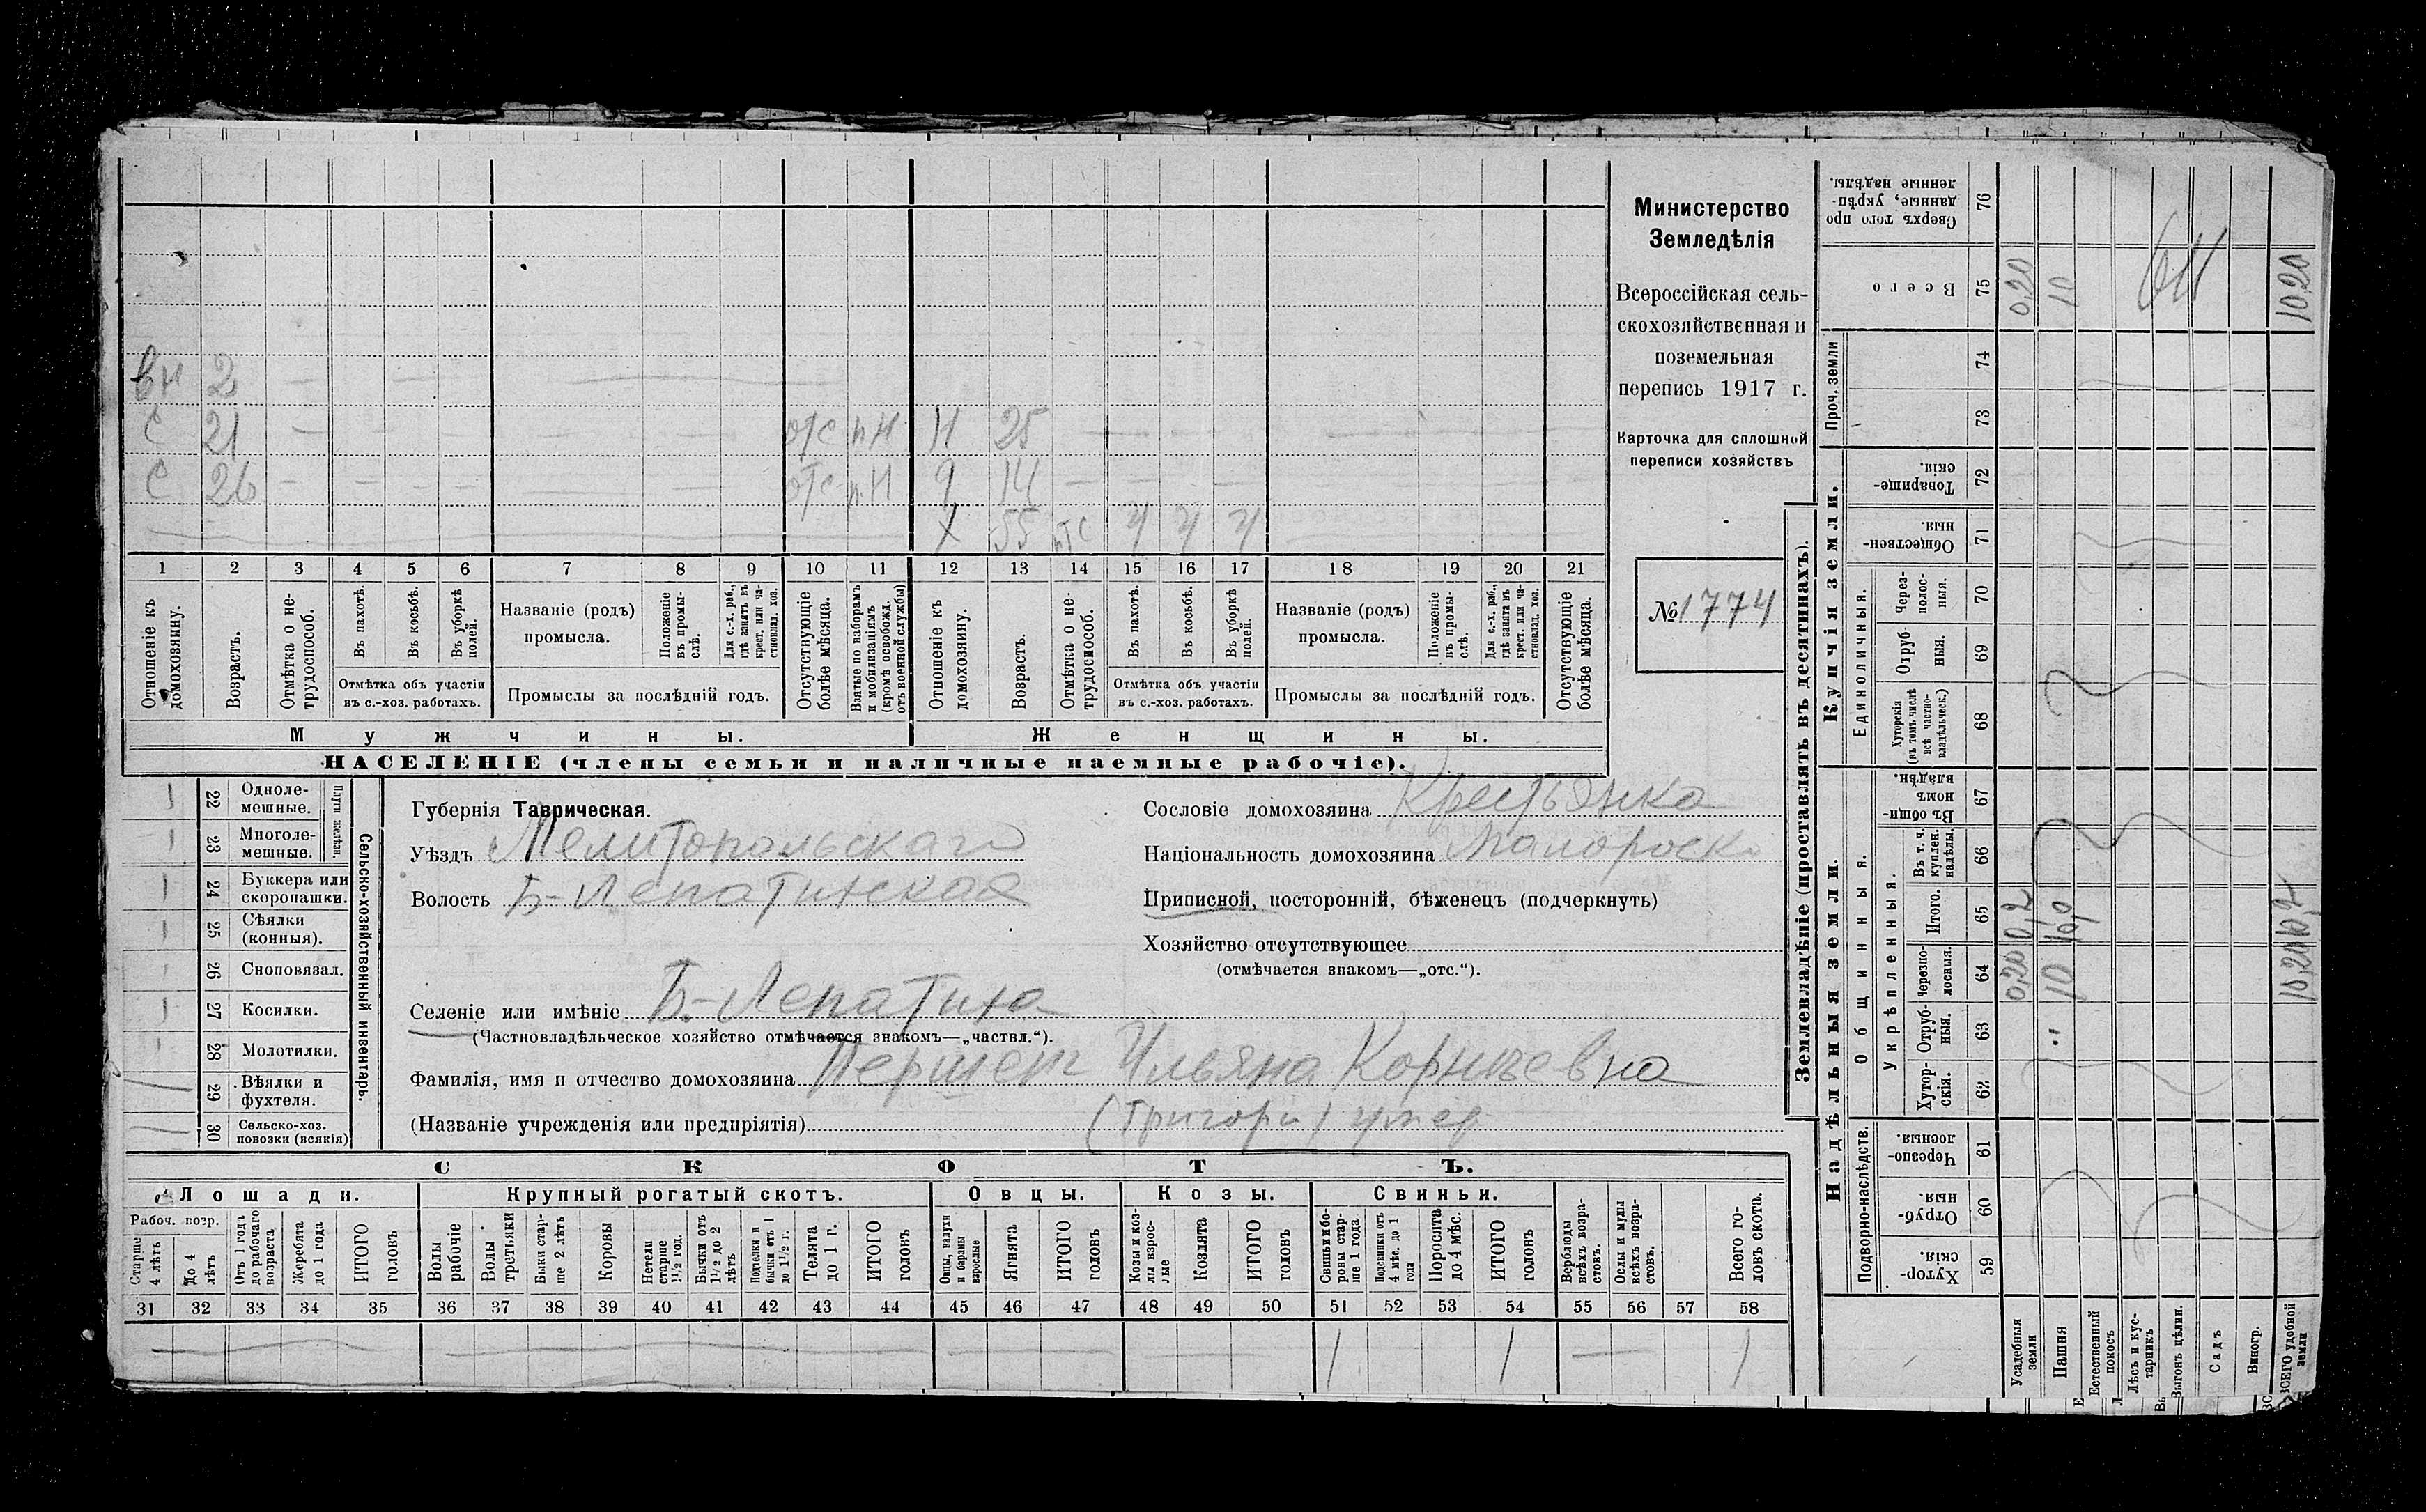 Министерство
Земледѣлія
Всероссійская сель-
скохозяйственная и
поземельная
перепись 1917 г.
Карточка для сплошной
переписи хозяйствъ
№ 1774
вн 2
с 21 отс пн Н 25
с 26 отс п.н 9 14
Х 55 ч ч ч
1 2 3 4 5 6 7 8 9 10 11 12 13 14 15 16 17 18 19 20 21
Отношеніе къ домохозяину.
Возрастъ.
Отмѣтка о не-трудоспособ.
Въ пахотѣ.
Въ косьбѣ.
Въ уборкѣ полей.
Отмѣтка объ участіи
въ с.-хоз. работахъ.
Названіе (родъ)
промысла.
Положеніе въ промы-слѣ.
Для с.-х. раб., гдѣ занятъ въ крест. или ча-стновлад. хоз.
Промыслы за послѣдній годъ.
Отсутствующіе болѣе мѣсяца.
Взятые по наборамъ и мобилизаціямъ (кромѣ освобожд. отъ военной службы)
Отношеніе къ домохозяину.
Возрастъ.
Отмѣтка о не-трудоспособ.
Въ пахотѣ.
Въ косьбѣ.
Въ уборкѣ полей.
Отмѣтка объ участіи
въ с.-хоз. работахъ.
Названіе (родъ)
промысла.
Положеніе въ промы-слѣ.
Для с.-х. раб., гдѣ занята въ крест. или ча-стновлад. хоз.
Промыслы за послѣдній годъ.
Отсутствующіе болѣе мѣсяца.
Мужчины. Женщины.
НАСЕЛЕНІЕ (члены семьи и наличные наемные рабочіе).
Сельско-хозяйственный инвентарь.
Плуги желѣзн.
22 Одноле-мешные.
23 Многоле-мешные.
24 Буккера или скоропашки.
25 Сѣялки (конныя).
26 Сноповязал.
27 Косилки.
28 Молотилки.
29 Вѣялки и фухтеля.
30 Сельско-хоз. повозки (всякія)
Губернія Таврическая.
Уѣздъ Мелитопольскаго
Волость Б-Лепатихская
Селеніе или имѣніе Б.-Лепатиха
(Частновладѣльческое хозяйство отмѣчается знакомъ—„частвл.“).
Фамилія, имя и отчество домохозяина Першет Ульяна Корнѣевна
(Названіе учрежденія или предпріятія) (Григори) умер
Сословіе домохозяина Крестьянка
Національность домохозяина Малоросск
Приписной, посторонній, бѣженецъ (подчеркнуть)
Хозяйство отсутствующее
(отмѣчается знакомъ—„отс.“).
СКОТЪ.
Лошади. Крупный рогатый скотъ. Овцы. Козы. Свиньи.
Рабоч. возр.
Старше 4 лѣтъ
До 4 лѣтъ
Отъ 1 года до рабочаго возраста
Жеребята до 1 года
ИТОГО головъ
Волы рабочіе
Волы третьяки
Быки стар-ше 2 лѣтъ
Коровы
Нетели старше 1½ год.
Бычки отъ 1½ до 2 лѣтъ
Подтелки и бычки отъ 1 до 1½ г.
Телята до 1 г.
ИТОГО головъ
Овцы, валухи и бараны взрослые
Ягнята
ИТОГО головъ
Козы и коз-лы взрос-лые
Козлята
ИТОГО головъ
Свиньи и бо-ровы стар-ше 1 года
Подсвинки отъ 4 мѣс. до 1 года
Поросята до 4 мѣс.
ИТОГО головъ
Верблюды всѣхъ возра-стовъ.
Ослы и мулы всѣхъ возра-стовъ.
Всего го-ловъ скота.
31 32 33 34 35 36 37 38 39 40 41 42 43 44 45 46 47 48 49 50 51 52 53 54 55 56 57 58
1 1 1
Землевладѣніе (проставлять въ десятинахъ).
Надѣльныя земли.
Купчія земли.
Проч. земли
Подворно-наслѣдств.
Общинныя.
Укрѣпленныя.
Единоличныя.
Хутор-скія. 59
Отруб-ныя. 60
Черезпо-лосныя. 61
Хутор-скія. 62
Отруб-ныя. 63
Черезпо-лосныя. 64
Итого. 65
Въ т. ч. куплен. надѣлы. 66
Въ общи-номъ владѣн. 67
Хуторскія (въ томъ числѣ всѣ частно-владѣльческ.) 68
Отруб-ныя. 69
Через-полос-ныя. 70
Обществен-ныя. 71
Товарище-скія. 72
73
74
Всего 75
Сверхъ того про-данные, укрѣп-ленные надѣлы. 76
Усадебныя земли 0,20 0,2 0,20
Пашня 10 10,0 10
Естественный покосъ
Лѣсъ и кус-тарникъ
Выгонъ цѣлин.
Садъ
Виногр.
ВСЕГО удобной земли 10,20 10,2 10,20